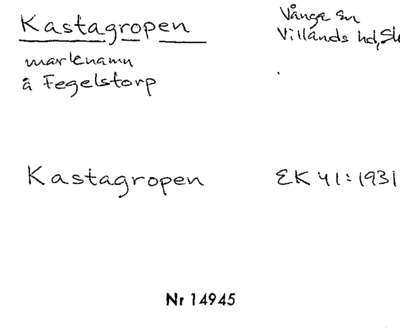 Kastagropen
Vånga sn
Villands hd, Sk
marknamn
å Fegelstorp
Kastagropen
EK 41:1931
Nr 14945